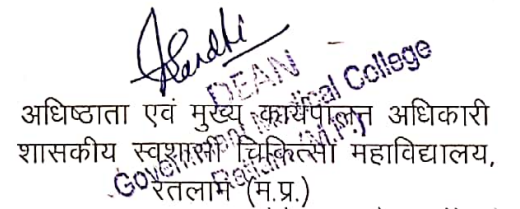 DEAN
Government Medical College
Ratlam (M.P.)
अधिष्ठाता एवं मुख्य कार्यपालन अधिकारी
शासकीय स्वशासी चिकित्सा महाविद्यालय,
रतलाम (म.प्र.)